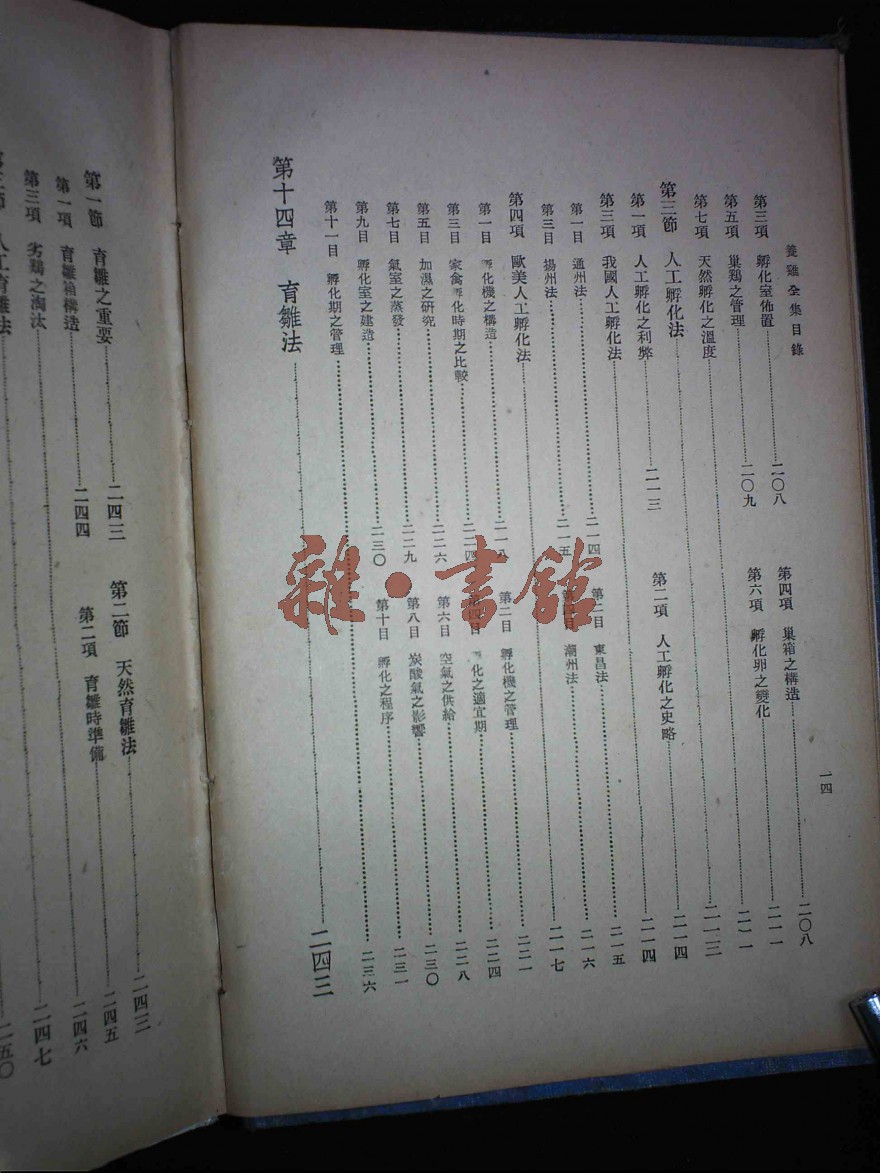 養雞全集目錄 一四
第三項 孵化室佈置 二〇八 第四項 巢箱之構造 二〇八
第五項 巢鷄之管理 二〇九 第六項 孵化卵之變化 二一一
第七項 天然孵化之溫度 二一一
第三節 人工孵化法 二一三
第一項 人工孵化之利弊 二一三 第二項 人工孵化之史略 二一四
第三項 我國人工孵化法 二一四
第一目 通州法 二一四 第二目 東昌法 二一五
第三目 揚州法 二一五 第四目 潮州法 二一六
第四項 歐美人工孵化法 二一七
第一目 孵化機之構造 二一八 第二目 孵化機之管理 二二一
第三目 家禽孵化時期之比較 二二四 第四目 孵化之適宜期 二二四
第五目 加濕之研究 二二六 第六目 空氣之供給 二二八
第七目 氣室之蒸發 二二九 第八目 炭酸氣之影響 二三〇
第九目 孵化室之建造 二三〇 第十目 孵化之程序 二三一
第十一目 孵化期之管理 二三六
第十四章 育雛法 二四三
第一節 育雛之重要 二四三 第二節 天然育雛法 二四三
第一項 育雛箱構造 二四四 第二項 育雛時準備 二四五
第三項 劣鷄之淘汰 二四六
人工育雛法 二四七
二五〇
雜·書館